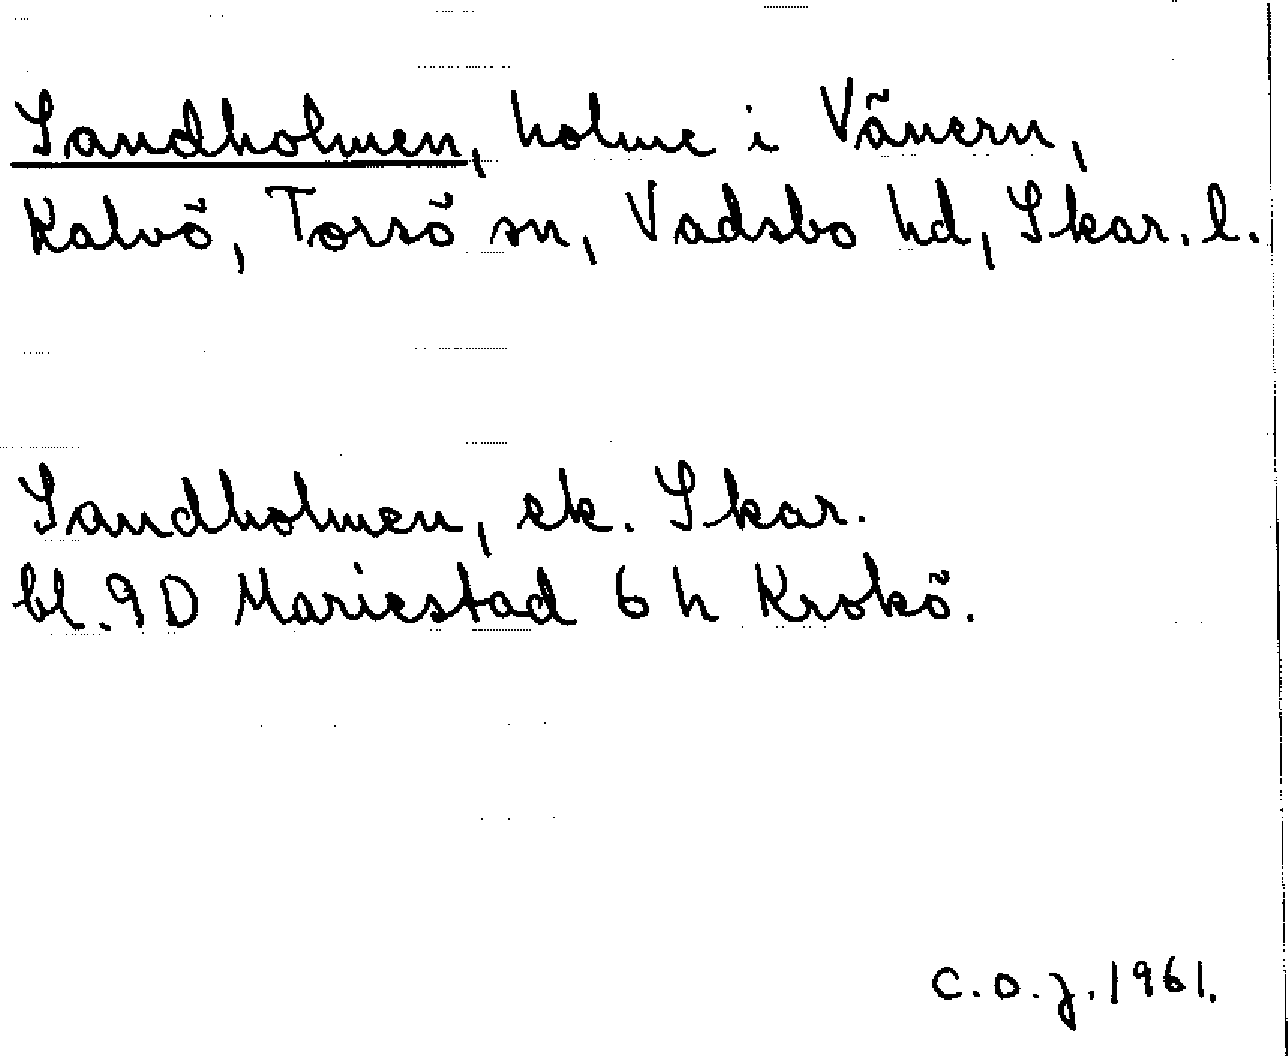 Sandholmen, holme i Vänern,
Kalvö, Torsö sn, Vadsbo hd, Skar. l.
Sandholmen, ek. Skar.
bl. 9D Mariestad 6 h Krokö.
C.O.J. 1961.